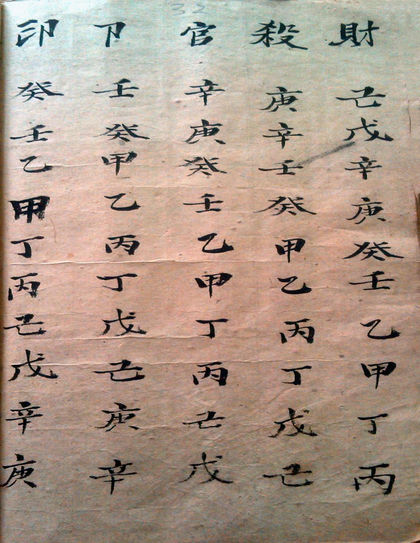 財己戊辛庚癸壬乙甲丁丙
殺庚辛壬癸甲乙丙丁戊己
官辛庚癸壬乙甲丁丙己戊
卩壬癸甲乙丙丁戊己庚辛
印癸壬乙甲丁丙己戊辛庚
32